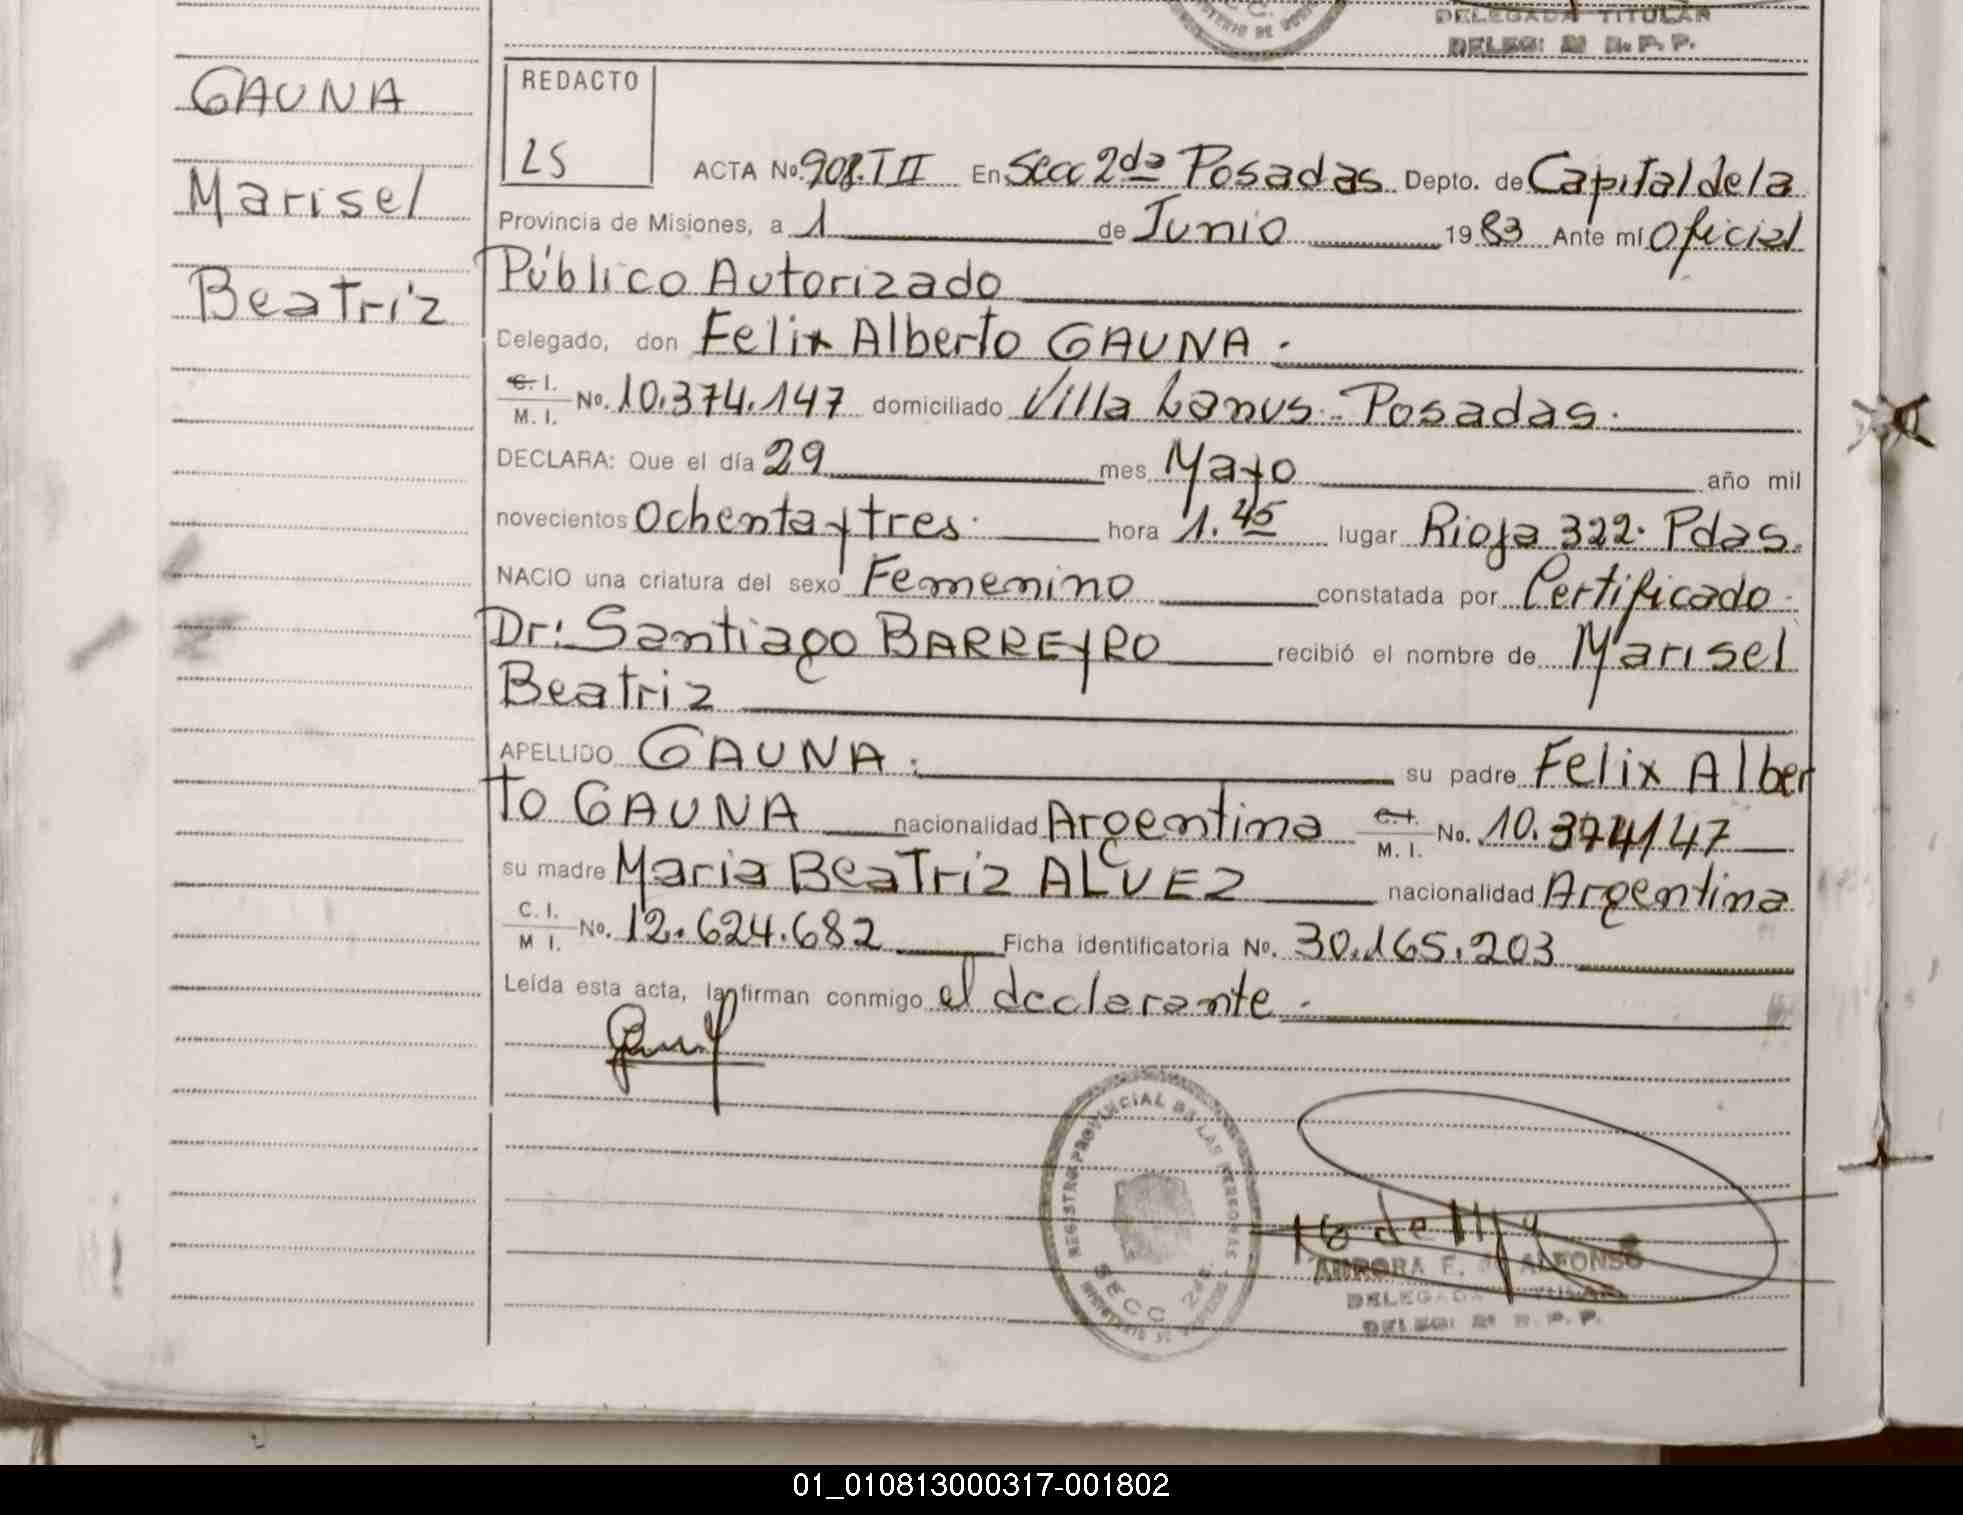 DELEGADA TITULAR
DELEG: 2ª R. P. P.
GAUNA
Marisel
Beatriz
REDACTO
LS
ACTA No. 908. T II En Secc 2da Posadas Depto. de Capital de la
Provincia de Misiones, a 1 de Junio 19 83 Ante mí Oficial
Público Autorizado
Delegado, don Felix Alberto GAUNA.
C. I. / M. I. No. 10.374.147 domiciliado Villa Lanus. Posadas.
DECLARA: Que el día 29 mes Mayo año mil
novecientos Ochenta y tres. hora 1.45 lugar Rioja 322. Pdas.
NACIO una criatura del sexo Femenino constatada por Certificado
Dr: Santiago BARREYRO recibió el nombre de Marisel
Beatriz
APELLIDO GAUNA. su padre Felix Alber
to GAUNA nacionalidad Argentina C. I. / M. I. No. 10.374147
su madre Maria BeaTriz ALVEZ nacionalidad Argentina
C. I. / M I. No. 12.624.682 Ficha identificatoria No. 30.165.203
Leída esta acta, la firman conmigo el declarante.
REGISTRO PROVINCIAL DE LAS PERSONAS
SECC. 2da.
AURORA E. ALFONSO
DELEGADA TITULAR
DELEG: 2ª R. P. P.
01_010813000317-001802